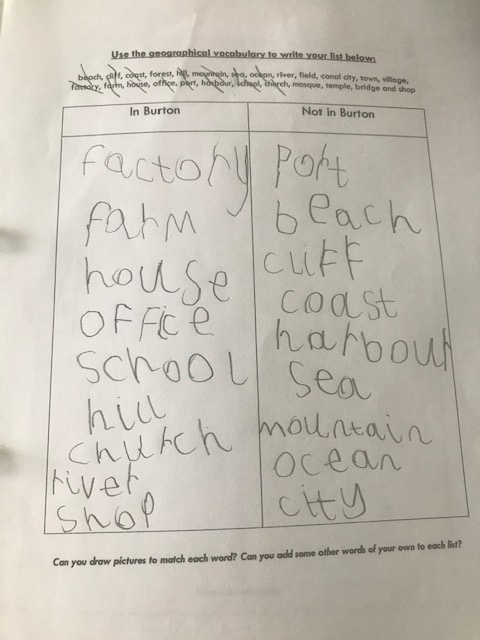 Use the geographical vocabulary to write your list below:
beach, cliff, coast, forest, hill, mountain, sea, ocean, river, field, canal city, town, village,
factory, farm, house, office, port, harbour, school, church, mosque, temple, bridge and shop
In Burton Not in Burton
factory port
farm beach
house cliff
office coast
school harbour
hill sea
church mountain
river ocean
shop city
Can you draw pictures to match each word? Can you add some other words of your own to each list?